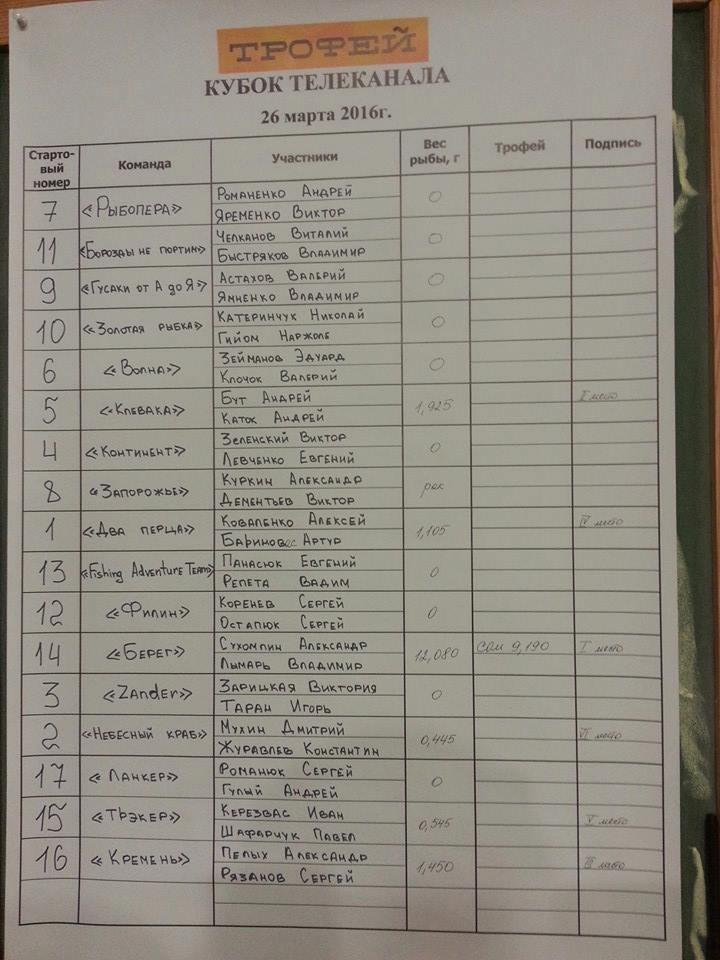 ТРОФЕЙ
КУБОК ТЕЛЕКАНАЛА
26 марта 2016г.
Старто-вый номер Команда Участники Вес рыбы, г Трофей Подпись
7 «Рыбопера» Романенко Андрей 0
Яременко Виктор
11 «Борозды не портим» Челканов Виталий 0
Быстряков Владимир
9 «Гусаки от А до Я» Астахов Валерий 0
Ямненко Владимир
10 «Золотая рыбка» Катеринчук Николай 0
Гийом Наржоле
6 «Волна» Зейманов Эдуард 0
Клочок Валерий
5 «Клевака» Бут Андрей 1,925 место
Каток Андрей
4 «Континент» Зеленский Виктор 0
Левченко Евгений
8 «Запорожье» Куркин Александр рак
Дементьев Виктор
1 «Два перца» Коваленко Алексей 1,105 IV место
Баринов Артур
13 «Fishing Adventure Team» Панасюк Евгений 0
Репета Вадим
12 «Филин» Коренев Сергей 0
Остапюк Сергей
14 «Берег» Сухомлин Александр 12,080 сом 9,190 I место
Лымарь Владимир
3 «Zander» Зарицкая Виктория 0
Таран Игорь
2 «Небесный краб» Мухин Дмитрий 0,445 VI место
Журавлев Константин
17 «Ланкер» Романюк Сергей 0
Гулый Андрей
15 «Трэкер» Керезвас Иван 0,545 V место
Шафарчук Павел
16 «Кремень» Пелых Александр 1,450 III место
Рязанов Сергей